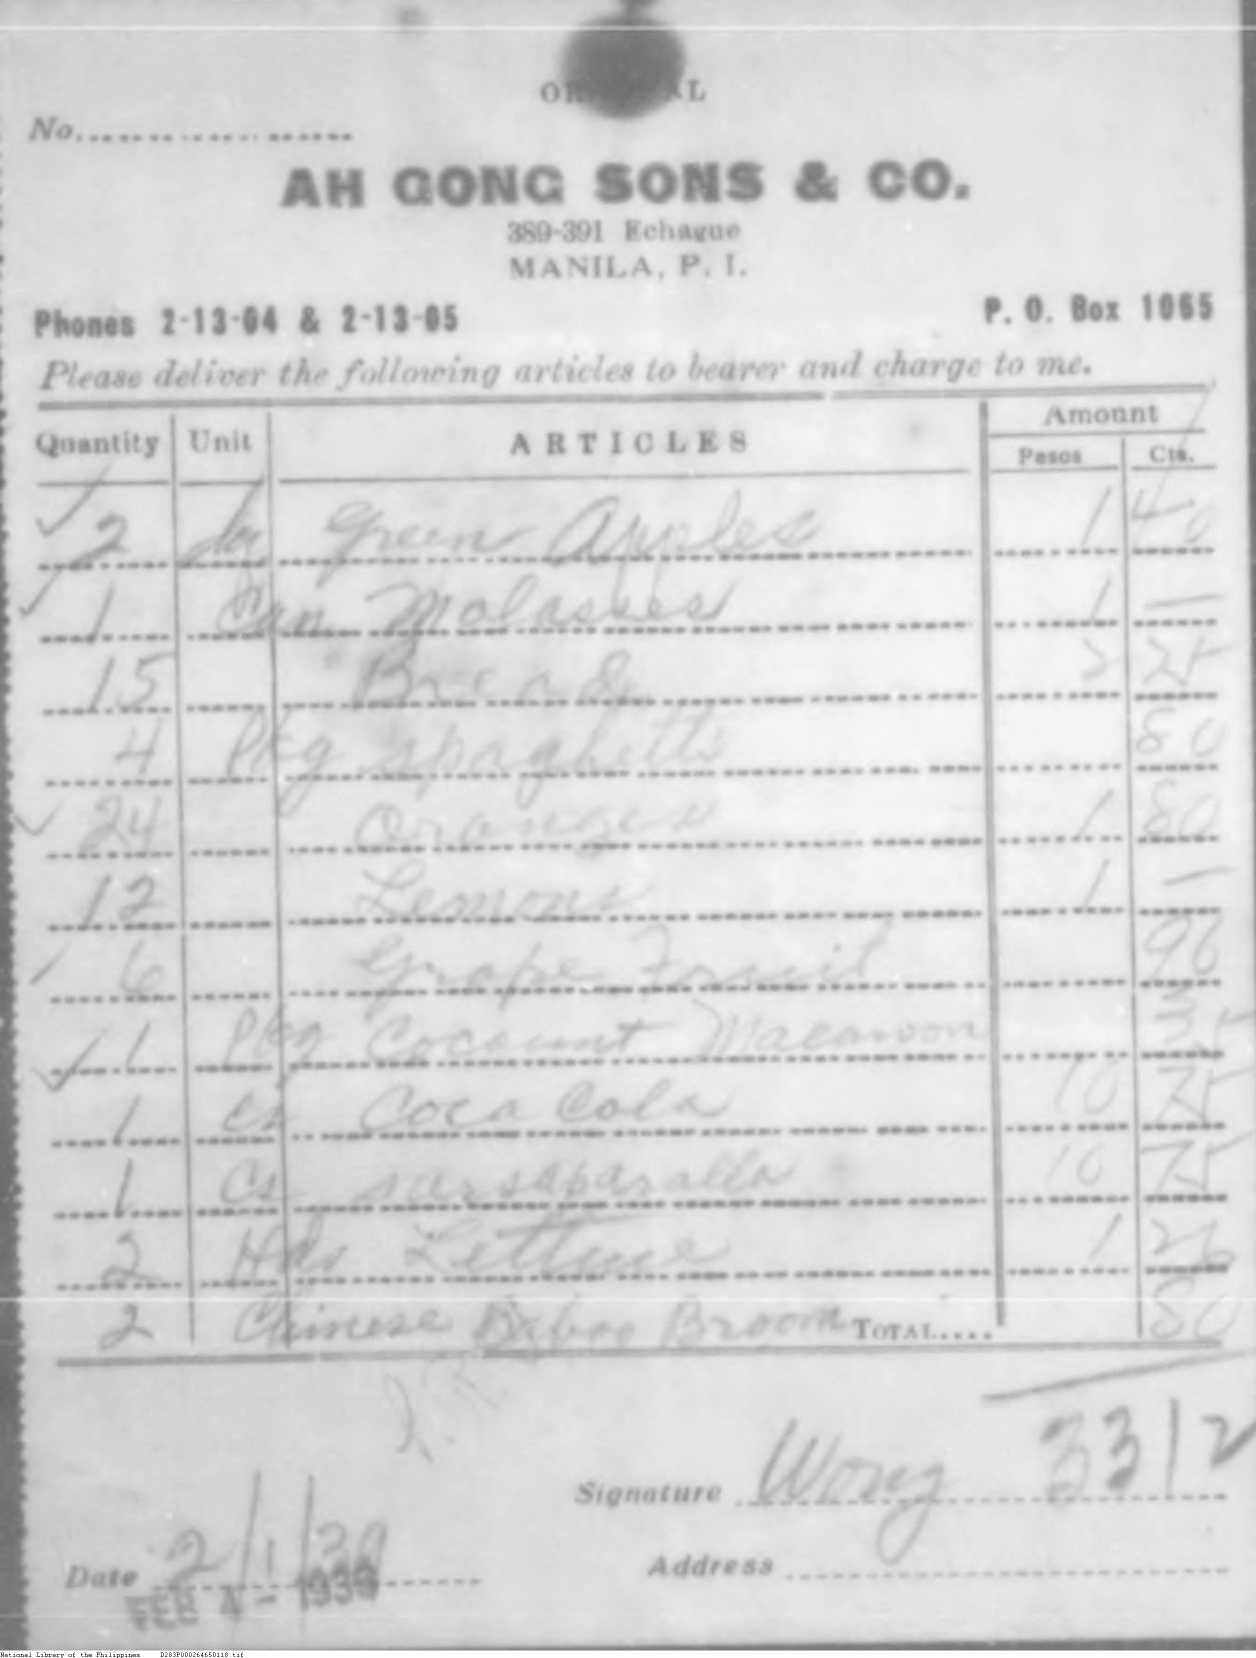 ORIGINAL
No.
AH GONG SONS & CO.
389-391 Echague
MANILA, P. I.
Phones 2-13-04 & 2-13-05 P. O. Box 1065
Please deliver the following articles to bearer and charge to me.
Quantity Unit ARTICLES Amount
Pesos Cts.
2 Green Apples 1 40
1 Can Molasses 1 —
15 Bread 2 25
4 Pkg spaghetti 80
24 Oranges 1 80
12 Lemons 1 —
6 Grape Fruit 96
1 Pkg Cocount Macaroon 35
1 Cs Coca Cola 10 75
1 Cs sarsaparalla 10 75
2 Hds Lettuce 1 26
2 Chinese Broom TOTAL.... 80
33 12
Signature Wong
Date 2/1/39 Address
FEB 4 - 1939
National Library of the Philippines D283P000264650118.tif